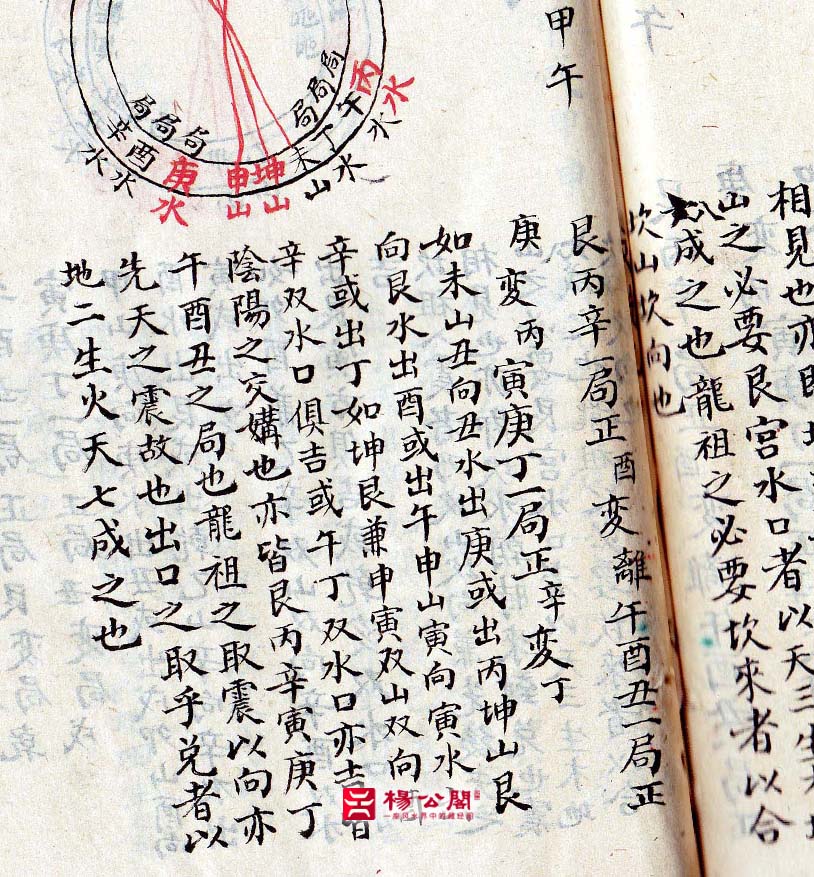 相見也亦即
山之必要艮宮水口者以天三生
八成之也龍祖之必要坎來者以合
坎山坎向也
甲午
艮丙辛一局正酉变離午酉丑一局正
庚变丙寅庚丁一局正辛变丁
如未山丑向丑水出庚或出丙坤山艮
向艮水出酉或出午申山寅向寅水
辛或出丁如坤艮兼申寅双山双向
辛双水口俱吉或午丁双水口亦吉
陰陽之交媾也亦皆艮丙辛寅庚丁
午酉丑之局也龍祖之取震以向亦
先天之震故也出口之取乎兌者以
地二生火天七成之也
局局局
局局局
丙水
午水
丁水
未山
坤山
申山
庚水
酉水
辛水
楊公閣